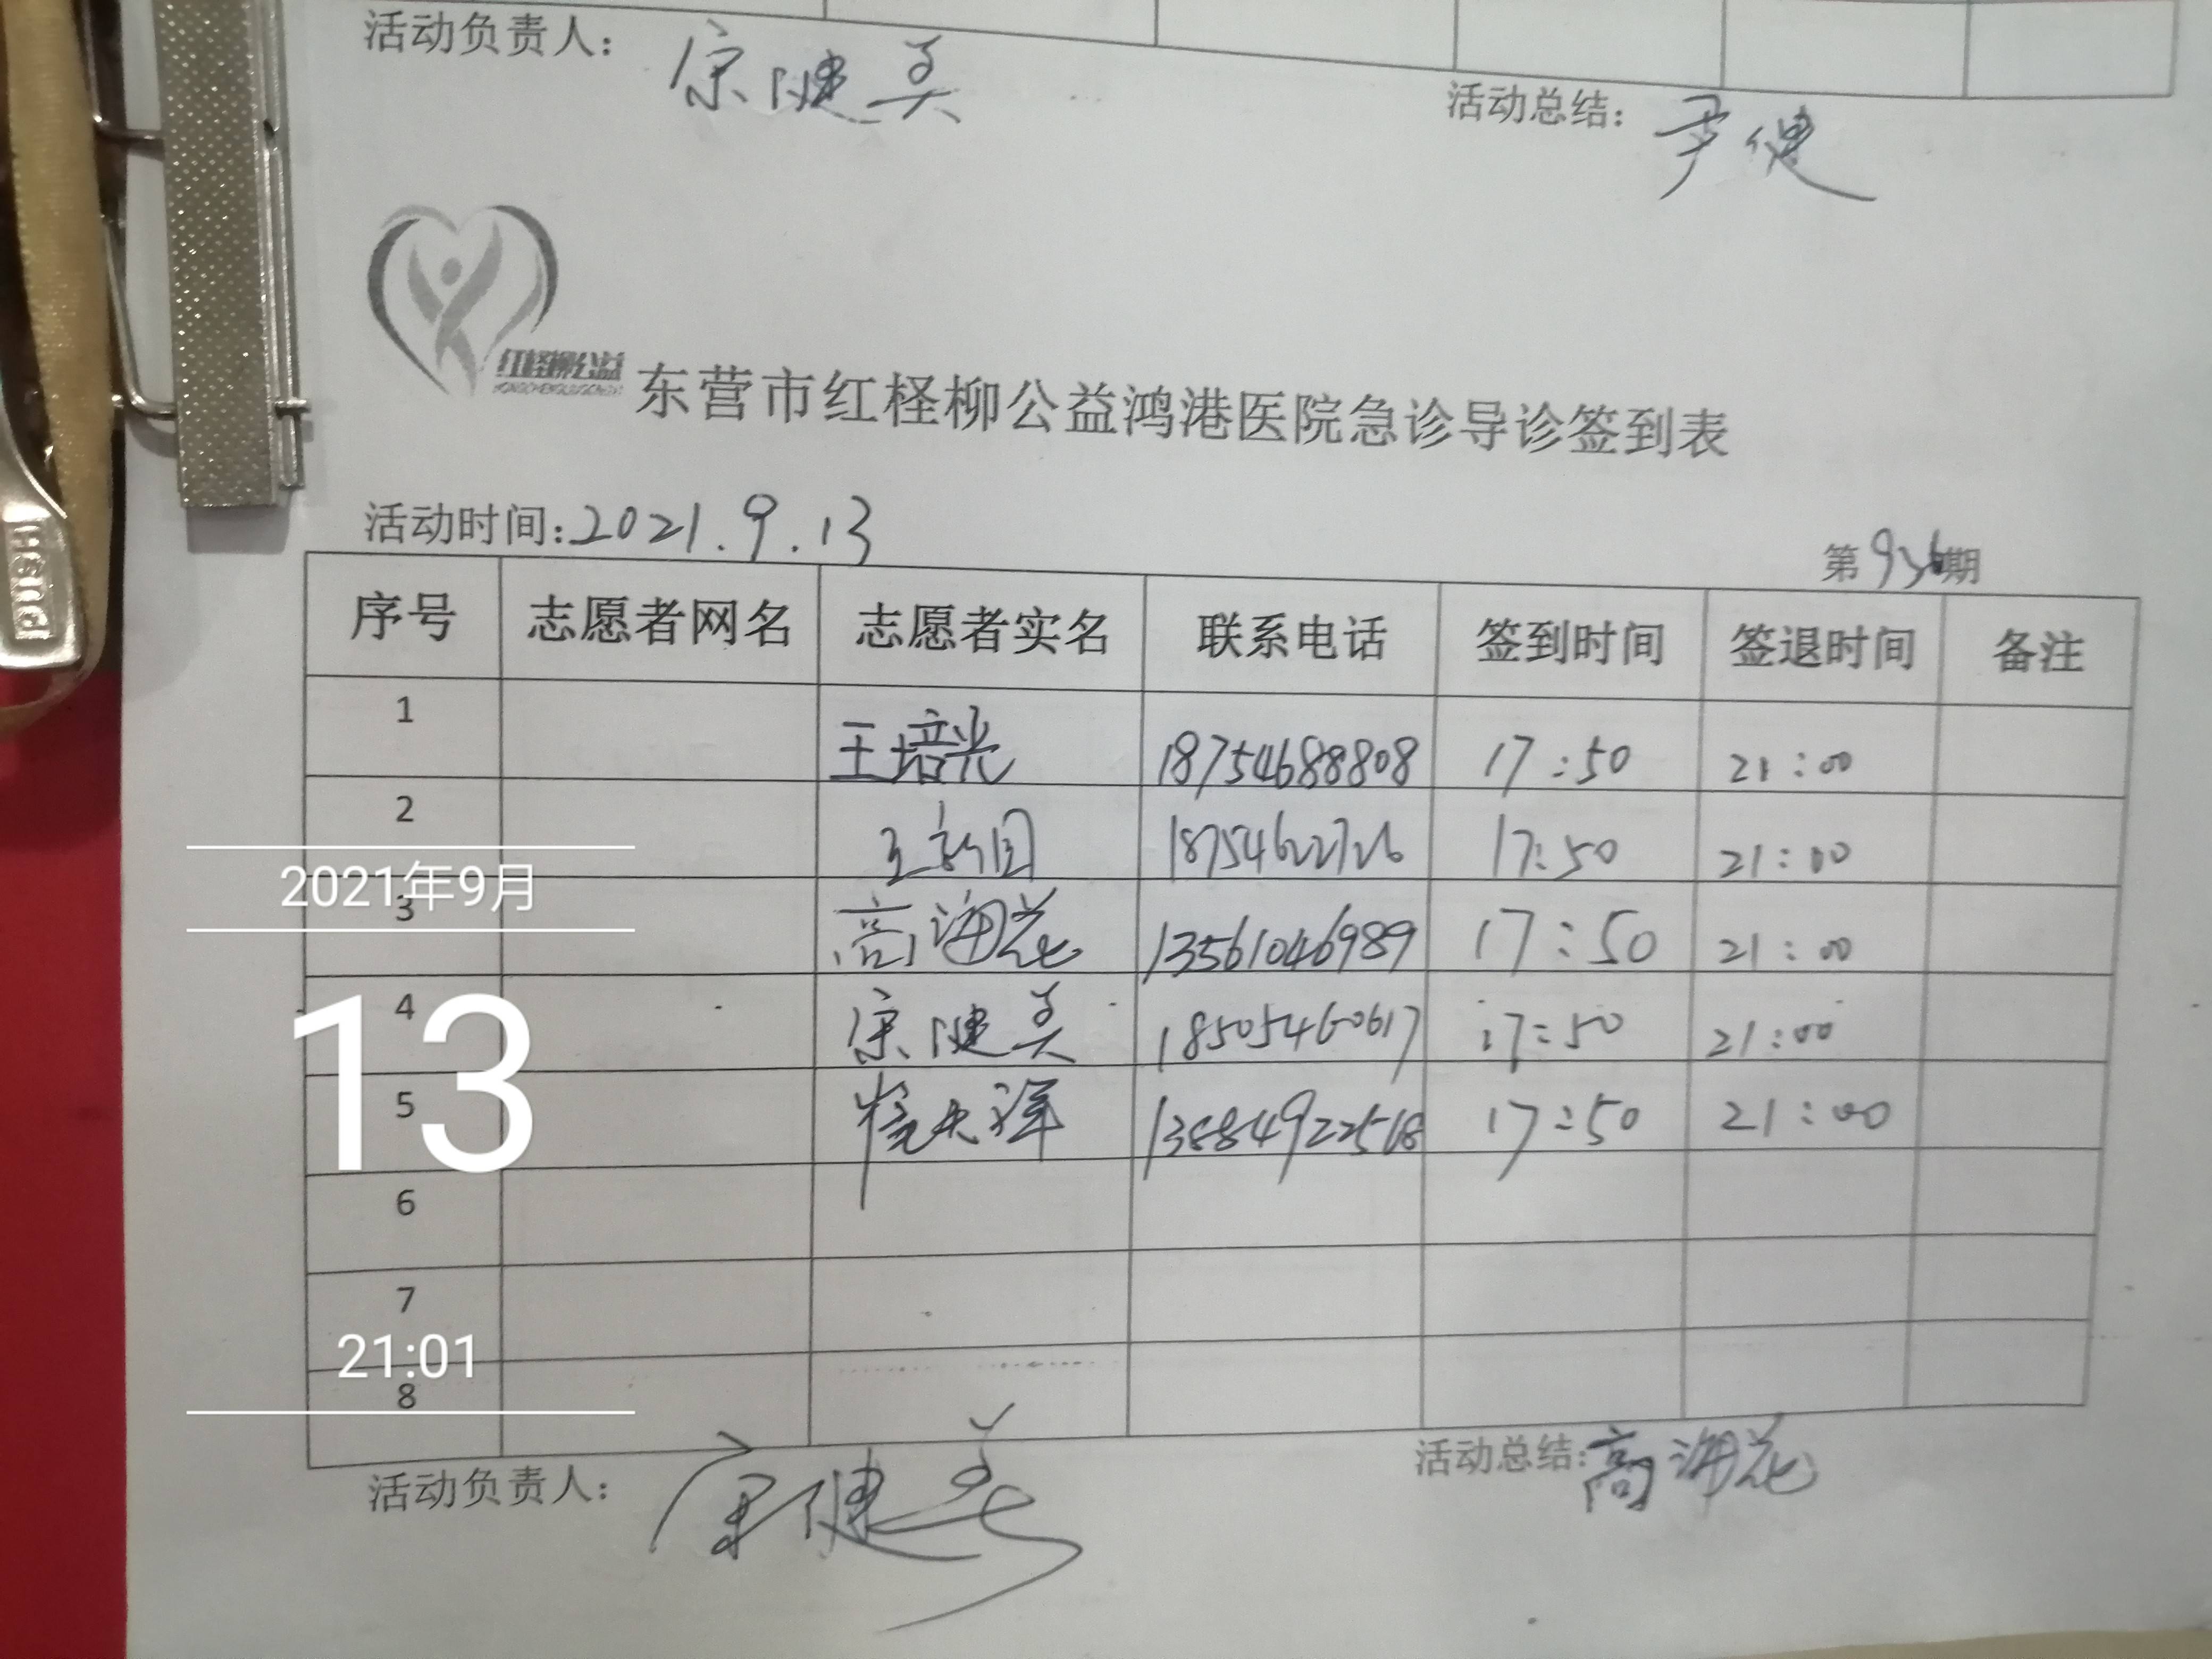 活动负责人：宗健美
活动总结：尹健
红柽柳公益
东营市红柽柳公益鸿港医院急诊导诊签到表
活动时间：2021.9.13
第936期
序号 志愿者网名 志愿者实名 联系电话 签到时间 签退时间 备注
1 王培光 18754688808 17:50 21:00
2 18754622726 17:50 21:00
2021年9月
3 高海花 13561046989 17:50 21:00
4 宗健美 18505460617 17:50 21:00
13
5 13884922518 17:50 21:00
6
7
21:01
8
活动负责人：宗健美
活动总结：高海花
Hend